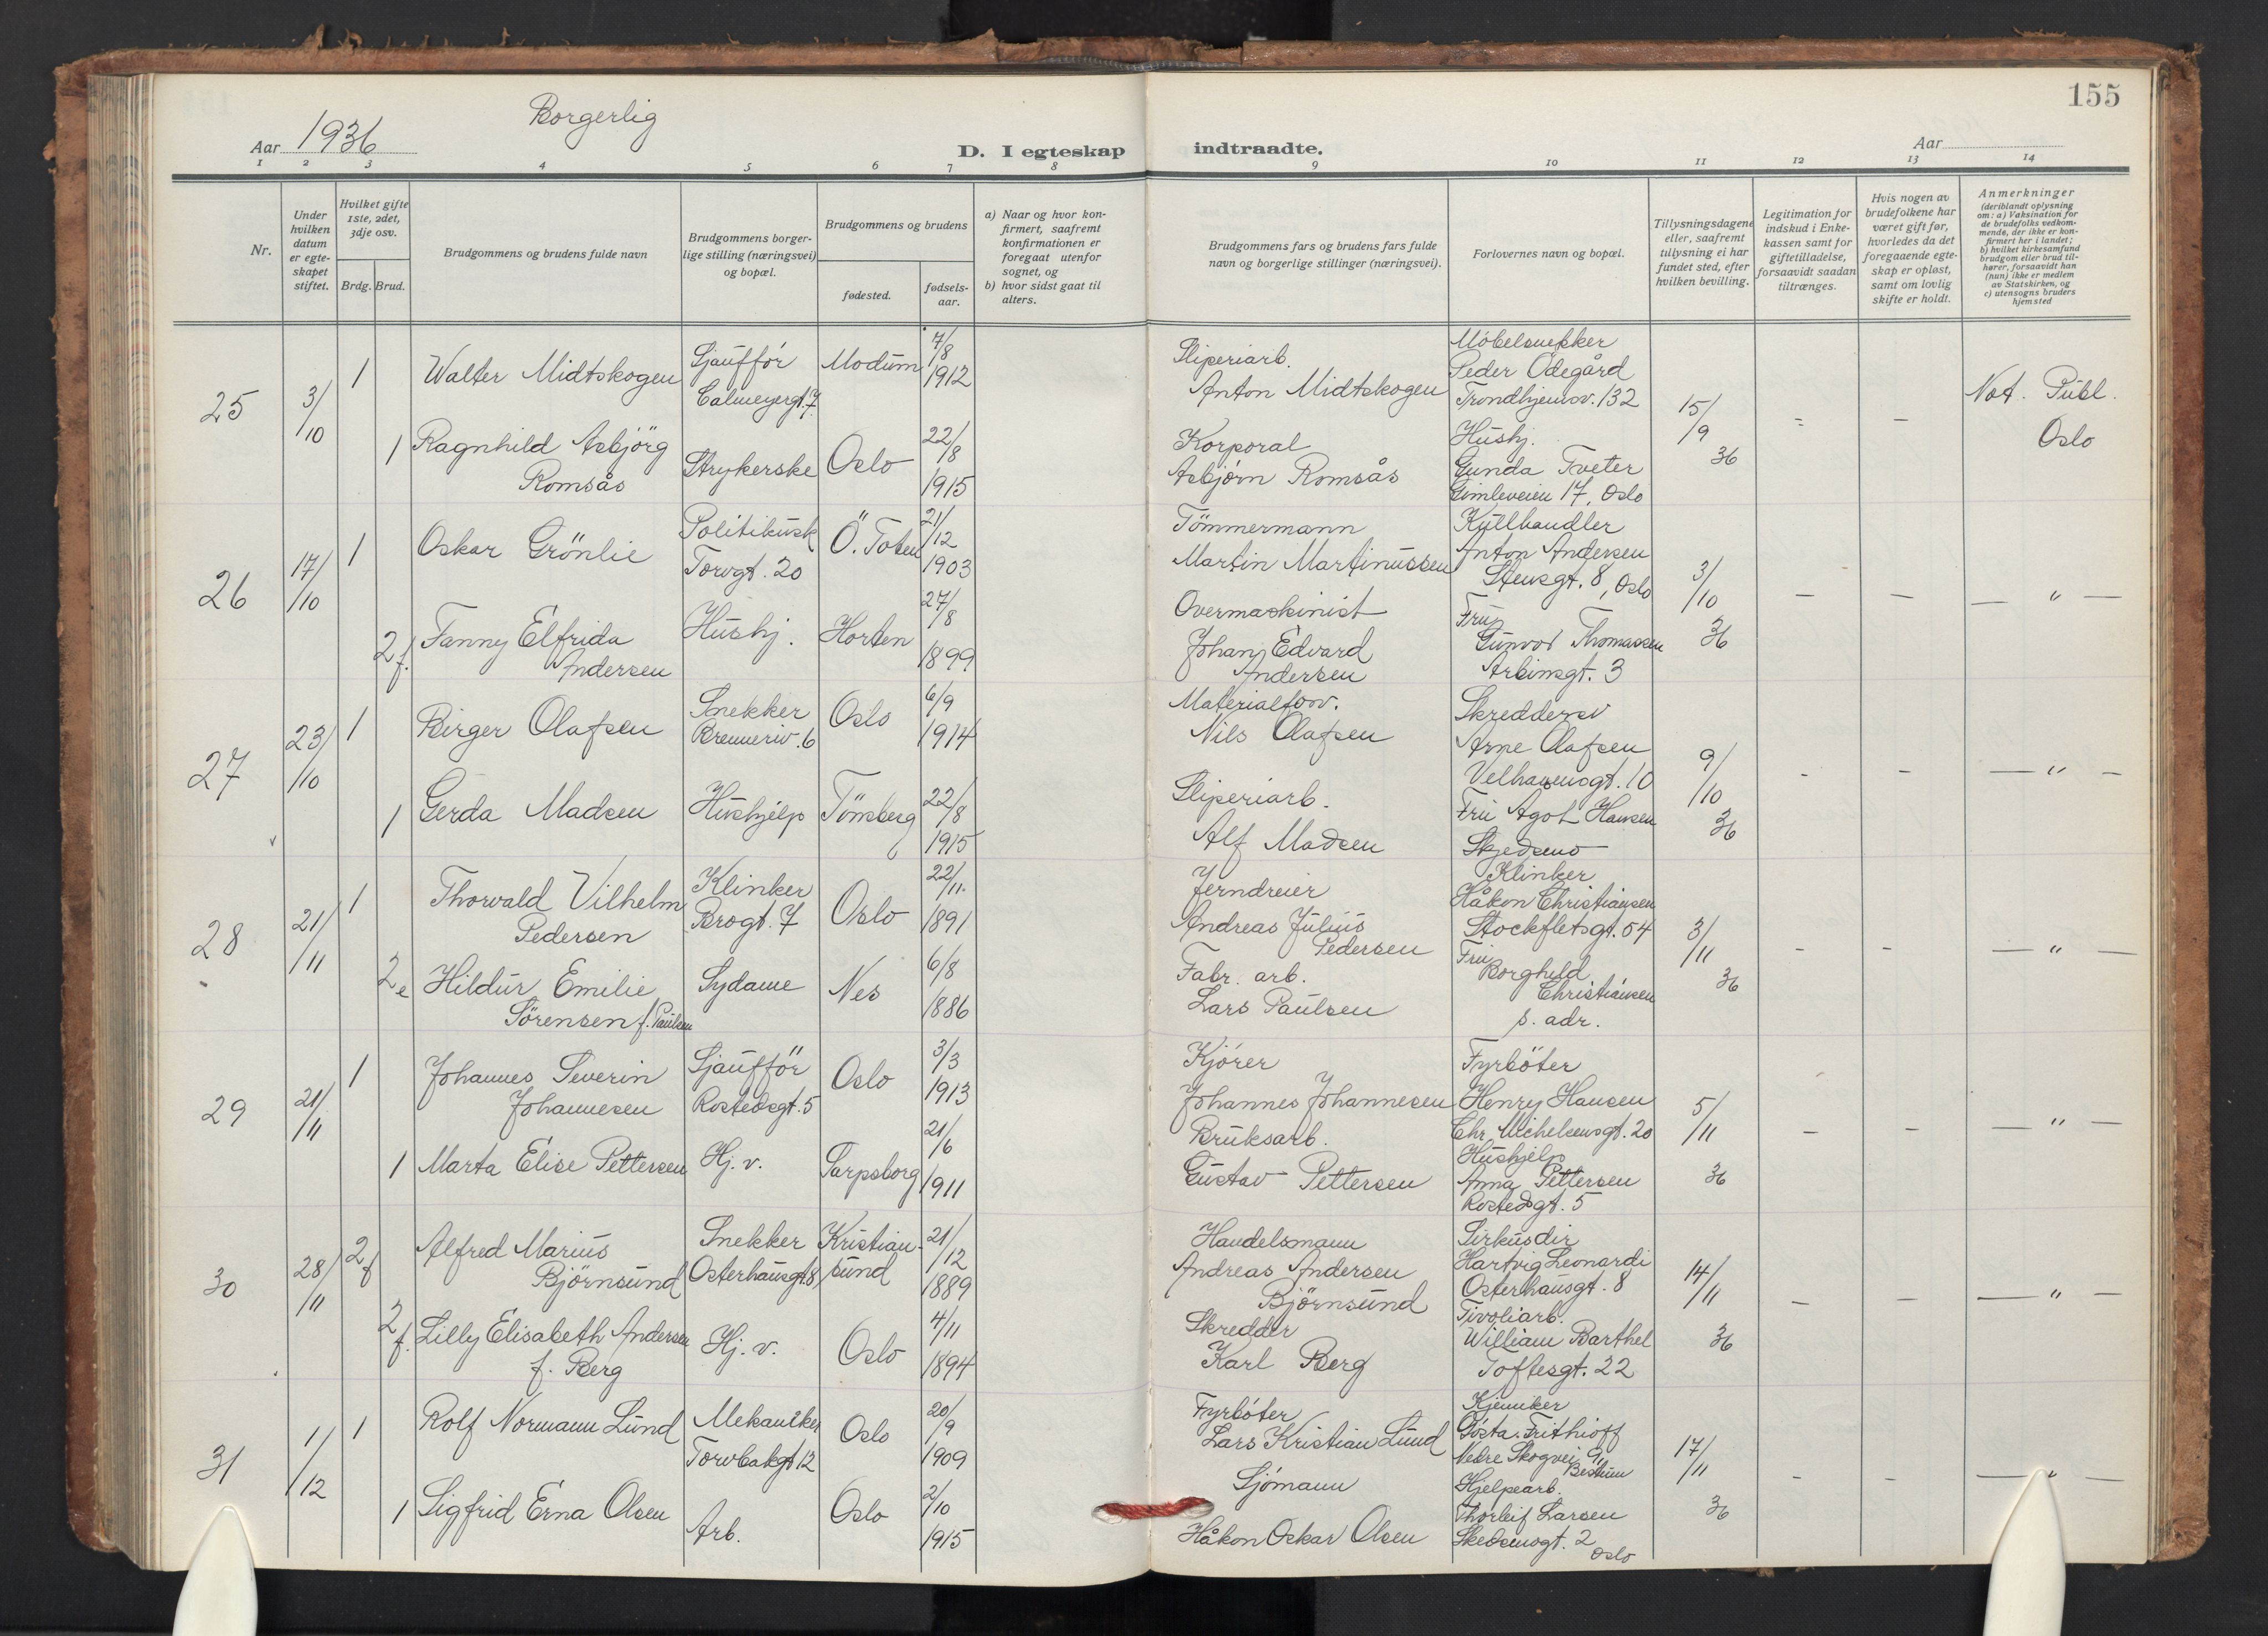 155
Borgerlig
Aar 1936
D. I egteskap indtraadte.
Aar
1 2 3 4 5 6 7 8 9 10 11 12 13 14
Nr.
Under hvilken datum er egte-skapet stiftet.
Hvilket gifte 1ste, 2det, 3dje osv.
Brdg. Brud.
Brudgommens og brudens fulde navn
Brudgommens borger-lige stilling (næringsvei) og bopæl.
Brudgommens og brudens
fødested.
fødsels-aar.
a) Naar og hvor kon-firmert, saafremt konfirmationen er foregaat utenfor sognet, og
b) hvor sidst gaat til alters.
Brudgommens fars og brudens fars fulde navn og borgerlige stillinger (næringsvei).
Forlovernes navn og bopæl.
Tillysningsdagene eller, saafremt tillysning ei har fundet sted, efter hvilken bevilling.
Legitimation for indskud i Enke-kassen samt for giftetilladelse, forsaavidt saadan tiltrænges.
Hvis nogen av brudefolkene har været gift før, hvorledes da det foregaaende egte-skap er opløst, samt om lovlig skifte er holdt.
Anmerkninger (deriblandt oplysning om: a) Vaksination for de brudefolks vedkom-mende, der ikke er kon-firmert her i landet; b) hvilket kirkesamfund brudgom eller brud til-hører, forsaavidt han (hun) ikke er medlem av Statskirken, og c) utensogns bruders hjemsted
25 3/10
1 Walter Midtskogen
Sjaufför Calmeyergt. 7
Modum 7/8 1912
Sliperiarb. Anton Midtskogen
Møbelsnekker Peder Ødegård Trondhjemsv. 132
15/9 36
= —
Not. Publ. Oslo
1 Ragnhild Asbjörg Romsås
Strykerske Oslo 22/8 1915
Korporal Asbjørn Romsås
Hushj. Gunda Tveter Gimleveien 17, Oslo
26 17/10
1 Oskar Grönlie
Politikusk Torvgt. 20
Ö. Toten 21/12 1903
Tömmermann Martin Martinussen
Kullhandler Anton Andersen Stensgt. 8, Oslo
3/10 36
— — — " —
2 f. Fanny Elfrida Andersen
Hushj. Horten 27/8 1899
Overmaskinist Johan Edvard Andersen
Fru Gunvor Thomassen Arbinsgt. 3
27 23/10
1 Birger Olafsen
Snekker Brenneriv. 6
Oslo 6/9 1914
Materialforv. Nils Olafsen
Skreddersv Arne Olafsen Velhavensgt. 10
9/10 36
- - — " —
1 Gerda Madsen
Hushjelp Tönsberg 22/8 1915
Sliperiarb. Alf Madsen
Fru Agot Hansen Skjedsmo
28 21/11
1 Thorvald Vilhelm Pedersen
Klinker Brogt. 7
Oslo 22/11. 1891
Jerndreier Andreas Julius Pedersen
Klinker Håkon Christiansen Stockfletsgt. 54
3/11 36
- - — " —
2 e Hildur Emilie Sörensen f. Paulsen
Sydame Nes 6/8 1886
Fabr. arb. Lars Paulsen
Fru Borghild Christiansen s. adr.
29 21/11
1 Johannes Severin Johannesen
Sjaufför Rostedsgt. 5
Oslo 3/3 1913
Kjører Johannes Johannesen
Fyrböter Henry Hansen Chr. Michelsensgt. 20
5/11 36
— — — " —
1 Marta Elise Pettersen
Hj. v. Sarpsborg 21/6 1911
Bruksarb. Gustav Pettersen
Hushjelp Anna Pettersen Rostedsgt. 5
30 28/11
2 f Alfred Marius Björnsund
Snekker Osterhausgt. 8
Kristian-sund 21/12 1889
Handelsmann Andreas Andersen Björnsund
Sirkusdir Hartvig Leonardi Osterhausgt. 8
14/11 36
— — — " —
2 f. Lilly Elisabeth Andersen f. Berg
Hj. v. Oslo 4/11 1894
Skredder Karl Berg
Tivoliarb. William Barthel Toftesgt. 22
31 1/12
1 Rolf Normann Lund
Mekaniker Torvbakgt 12
Oslo 20/9 1909
Fyrbøter Lars Kristian Lund
Kjemiker Gösta Frithioff Nedre Skogvei 9, Bestum
17/11 36
- - — " —
1 Sigfrid Erna Olsen
Arb. Oslo 2/10 1915
Sjømann Håkon Oskar Olsen
Hjelpearb. Thorleif Larsen Skedsmogt. 2 Oslo